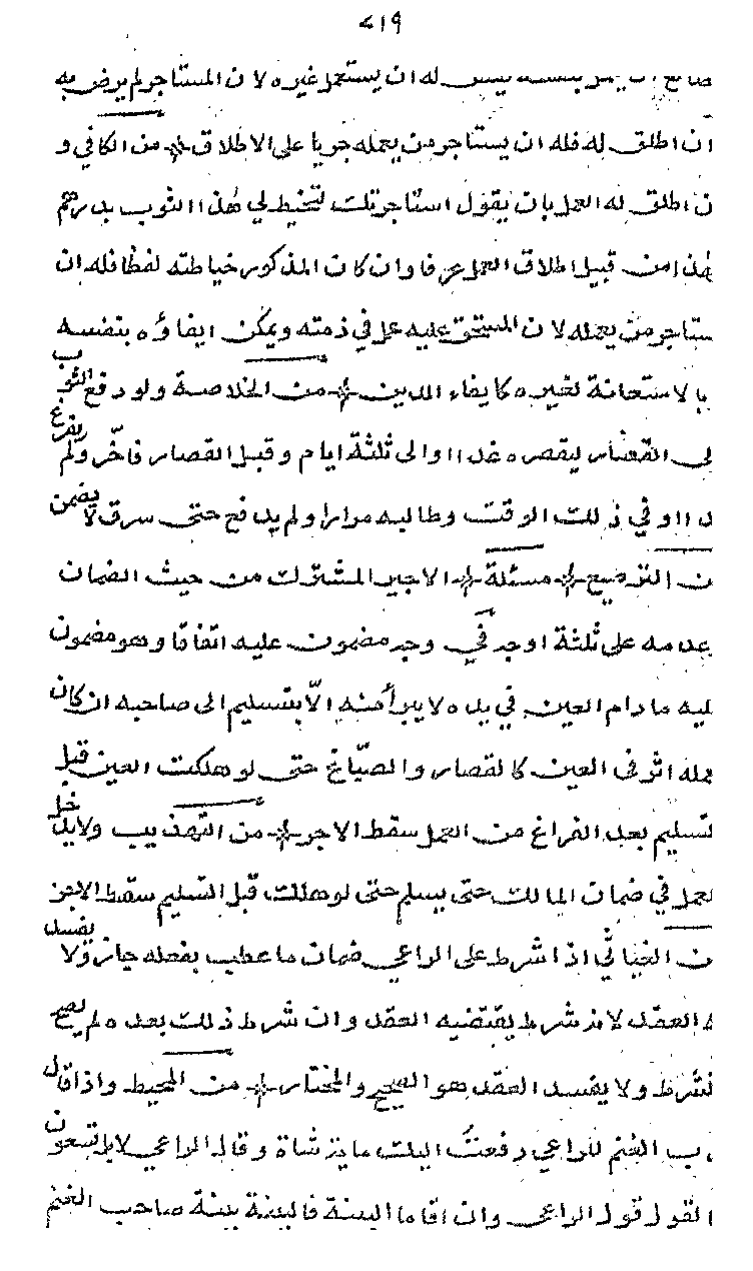 ٤١٩
له ان يستعمل غيره لان المستاجر لم يرض به
ان اطلق له فله ان يستاجر من يعمله جريا على الاطلاق من الكافي و
ن اطلق له العمل بان يقول استاجرتك لتخيط لي هذا الثوب بدرهم
هذا من قبيل اطلاق العمل عرفا وان كان المذكور خياطته لفظا فله ان
ستاجر من يعمله لان المستحق عليه عمل في ذمته ويمكن ايفاؤه بنفسه
با لاستعانة لغيره كايفاء الدين من الخلاصة ولو دفع الثوب
لى القصار ليقصره غدا او الى ثلثة ايام وقبل القصار فاخّر ولم يفرغ
دا او في ذلك الوقت وطالبه مرارا ولم يدفع حتى سرق لا يضمن
ن التوضيح مسئلة الاجير المشترك من حيث الضمان
عدمه على ثلثة اوجه في وجه مضمون عليه اتفاقا وهو مضمون
ليه مادام العين في يده لا يبرأ منه الّا بتسليم الى صاحبه ان كان
مله اثر في العين كالقصار والصبّاغ حتى لو هلكت العين قبل
تسليم بعد الفراغ من العمل سقط الاجر من التهذيب ولا يدخل
لعمل في ضمان المالك حتى يسلم حتى لو هلك قبل التسليم سقط الاجر
ن الخبّازي اذا شرط على الراعي ضمان ما عطب بفعله جاز ولا يفسد
ه العقد لانه شرط يقتضيه العقد وان شرط ذلك بعده لم يصح
لشرط ولا يفسد العقد هو الصحيح والمختار من المحيط واذا قال
ب الغنم للراعي دفعتُ اليك ماية شاة وقال الراعي لا بل تسعون
القول قول الراعي وان اقاما البينة فالبينة بينة صاحب الغنم